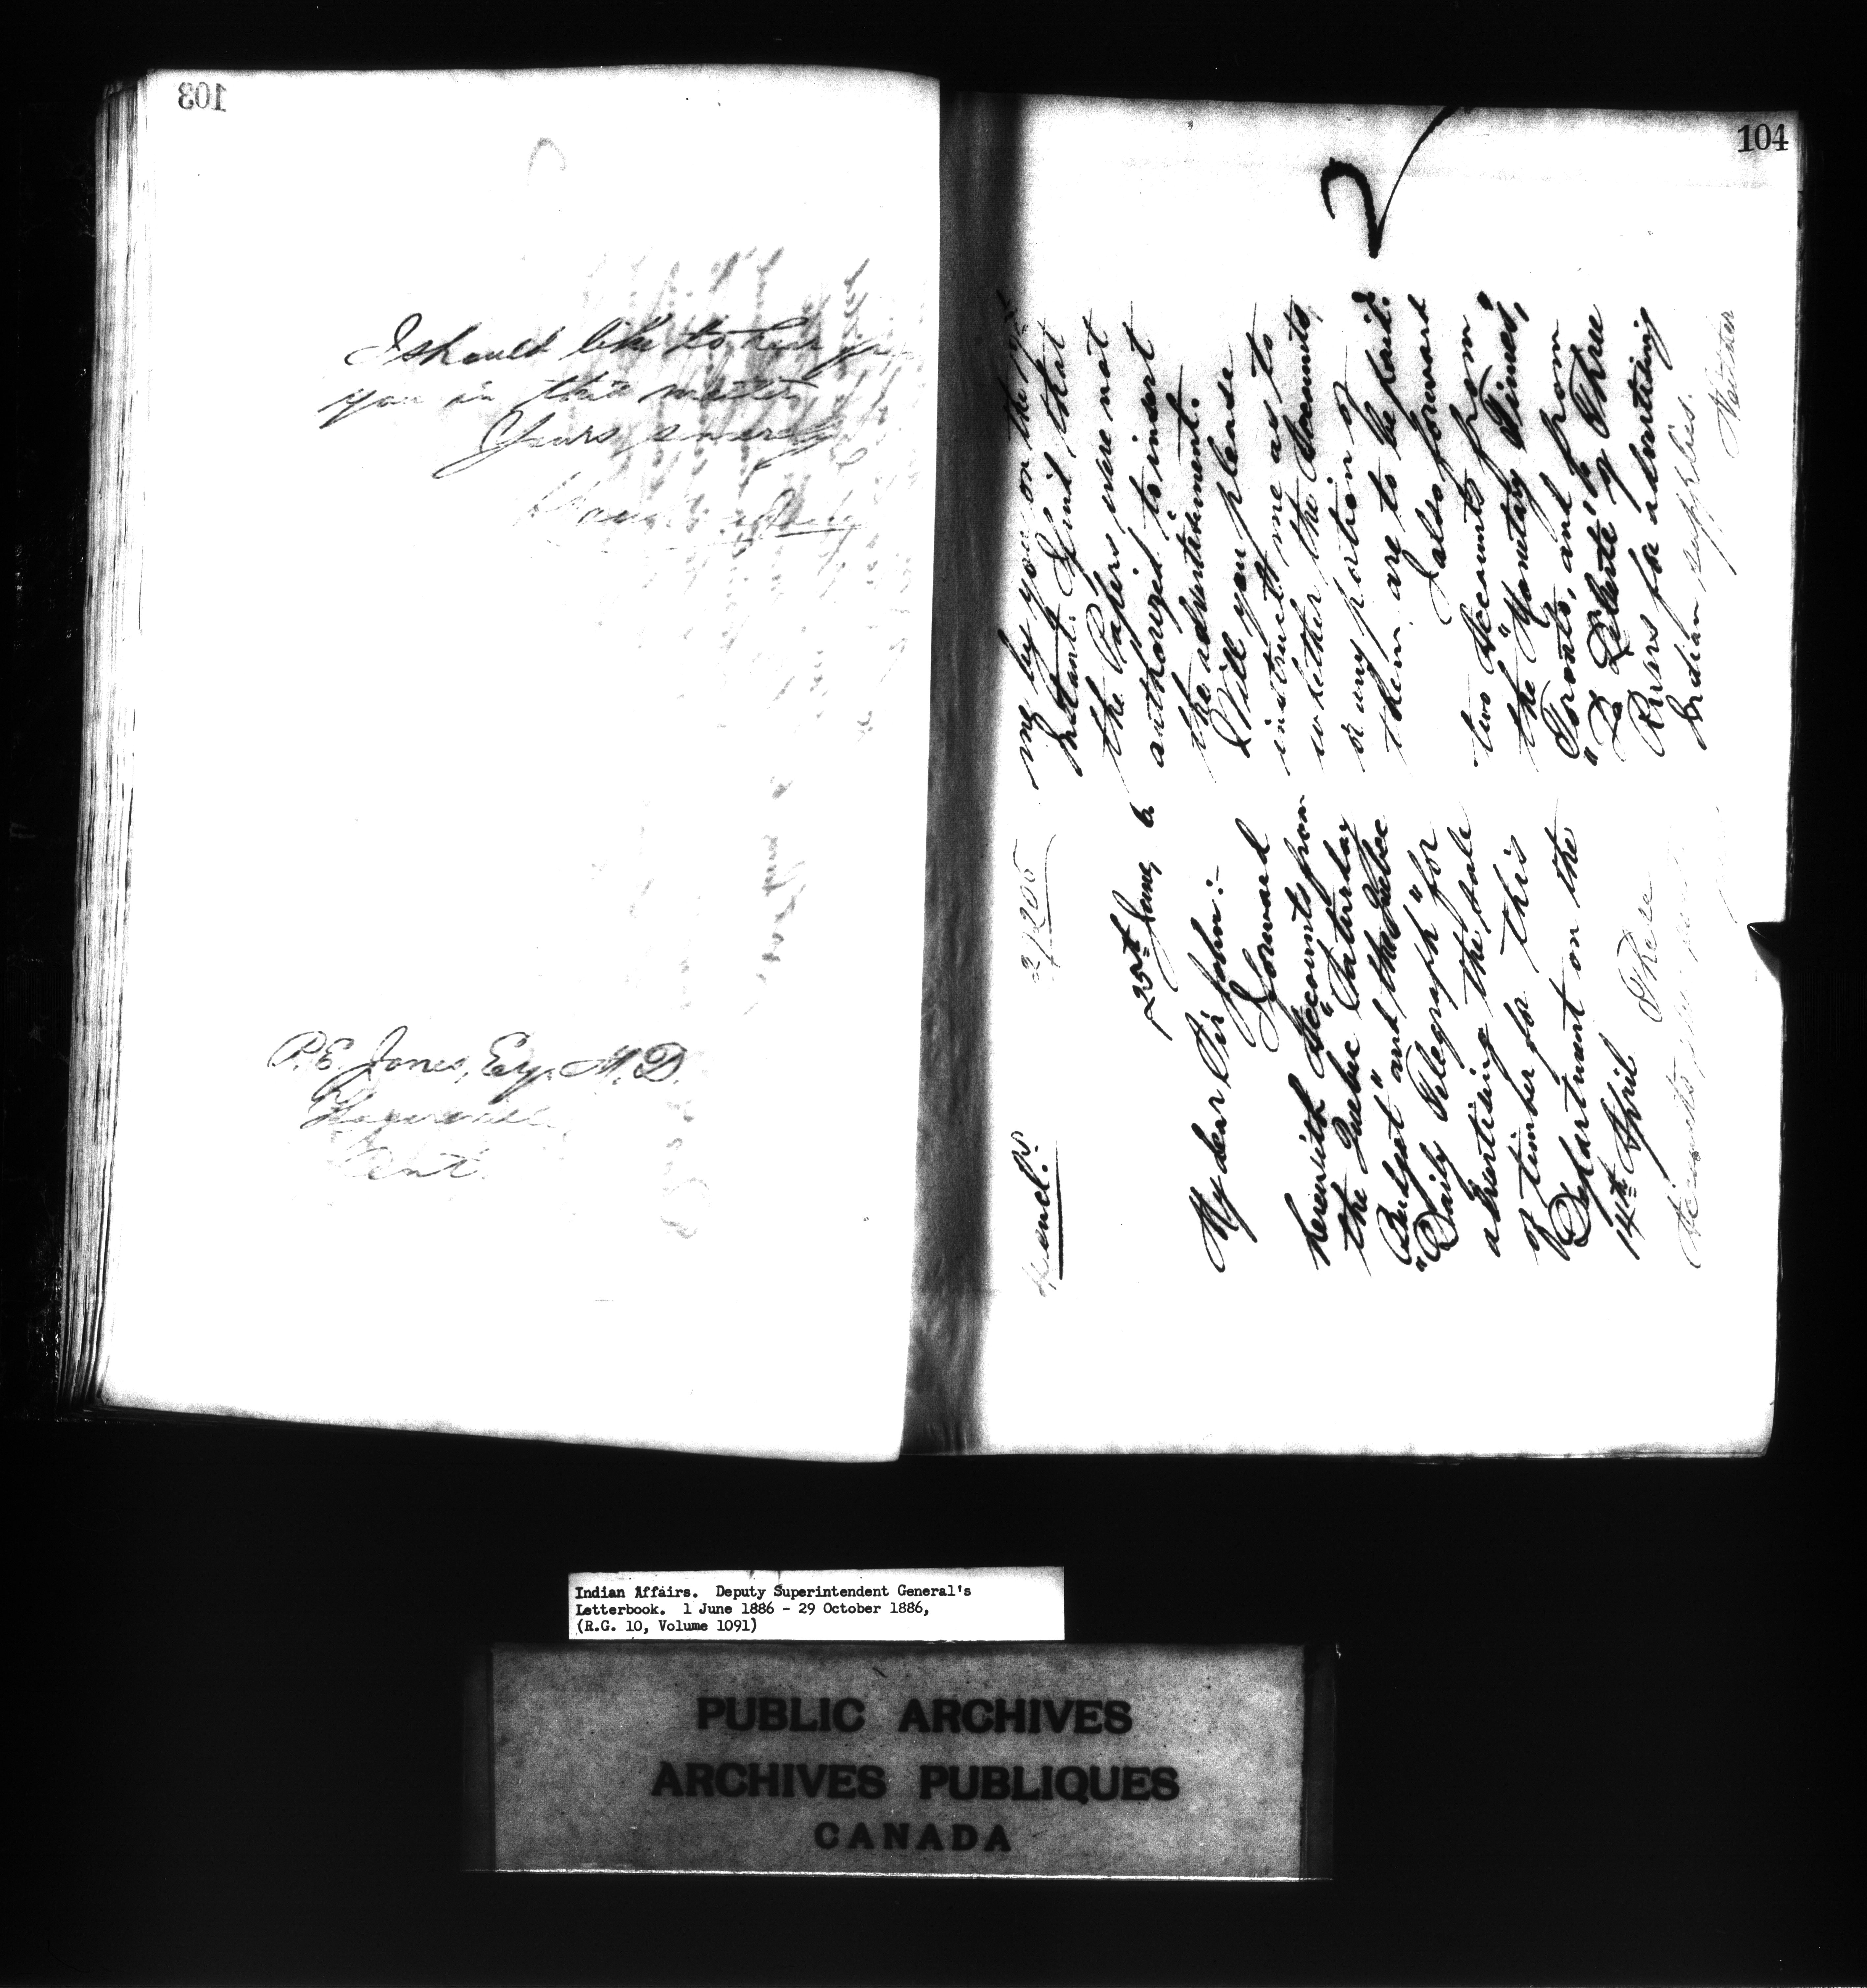 103
I should like to hear
you in this matter
Yours sincerely
P.E. Jones, Esq. M.D.
Hagersville
Ont.
104
4 encl.s
27205
25th June, 6
My dear Sir John:-
I forward
herewith Accounts from
the Quebec "Saturday
Budget" and the Quebec
"Daily Telegraph" for
advertising the sale
of timber for this
Department on the
14th April These
Accounts
me by you on the 19th
Instant. I find that
the Papers were not
authorized to insert
the advertisement.
Will you please
instruct me as to
whether the Accounts,
or any portion of
them, are to be paid?
I also forward
two Accounts from
the "Monetary Times",
Toronto, and from
"La Liberté" of Three
Rivers for advertising
Indian supplies.
Neither
Indian Affairs. Deputy Superintendent General's
Letterbook. 1 June 1886 - 29 October 1886,
(R.G. 10, Volume 1091)
PUBLIC ARCHIVES
ARCHIVES PUBLIQUES
CANADA